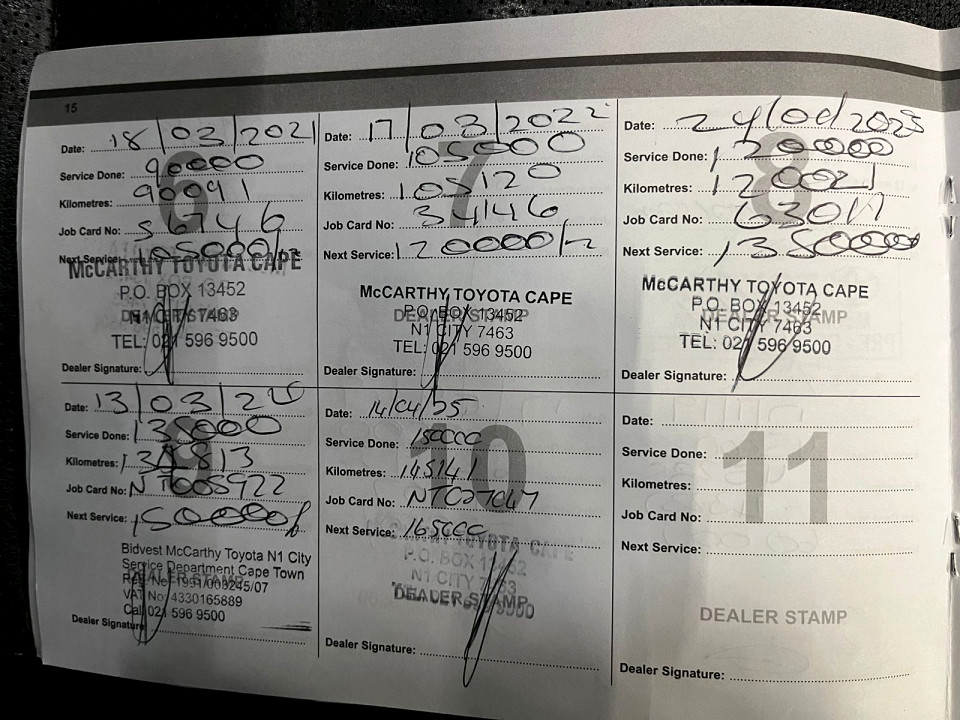 15
Date: 18/03/2021
Service Done: 90000
Kilometres: 90091
Job Card No: 56746
Next Service: 105000/12
McCARTHY TOYOTA CAPE
P.O. BOX 13452
N1 CITY 7463
TEL: 021 596 9500
Dealer Signature:
6
Date: 17/03/2022
Service Done: 105000
Kilometres: 105120
Job Card No: 34146
Next Service: 120000/12
McCARTHY TOYOTA CAPE
P.O. BOX 13452
N1 CITY 7463
DEALER STAMP
TEL: 021 596 9500
Dealer Signature:
7
Date: 24/ /2023
Service Done: 120000
Kilometres: 120021
Job Card No:
Next Service: 135000
McCARTHY TOYOTA CAPE
P.O. BOX 13452
N1 CITY 7463
DEALER STAMP
TEL: 021 596 9500
Dealer Signature:
8
Date: 13/03/
Service Done: 135000
Kilometres:
Job Card No: NT005922
Next Service: 150000
Bidvest McCarthy Toyota N1 City
Service Department Cape Town
Reg No 1991/003245/07
DEALER STAMP
VAT No: 4330165889
Call 021 596 9500
Dealer Signature:
9
Date: 14/04/25
Service Done: 150000
Kilometres: 145141
Job Card No: NT027047
Next Service: 165000
TOYOTA CAPE
P.O. BOX 13452
N1 CITY 7463
DEALER STAMP
Dealer Signature:
10
Date:
Service Done:
Kilometres:
Job Card No:
Next Service:
DEALER STAMP
Dealer Signature:
11